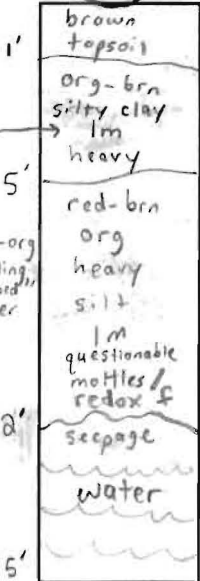 brown
topsoil
1'
org-brn
silty clay
lm
heavy
5'
red-brn
org
heavy
silt
lm
questionable
mottles/
redox f
2'
seepage
water
5'